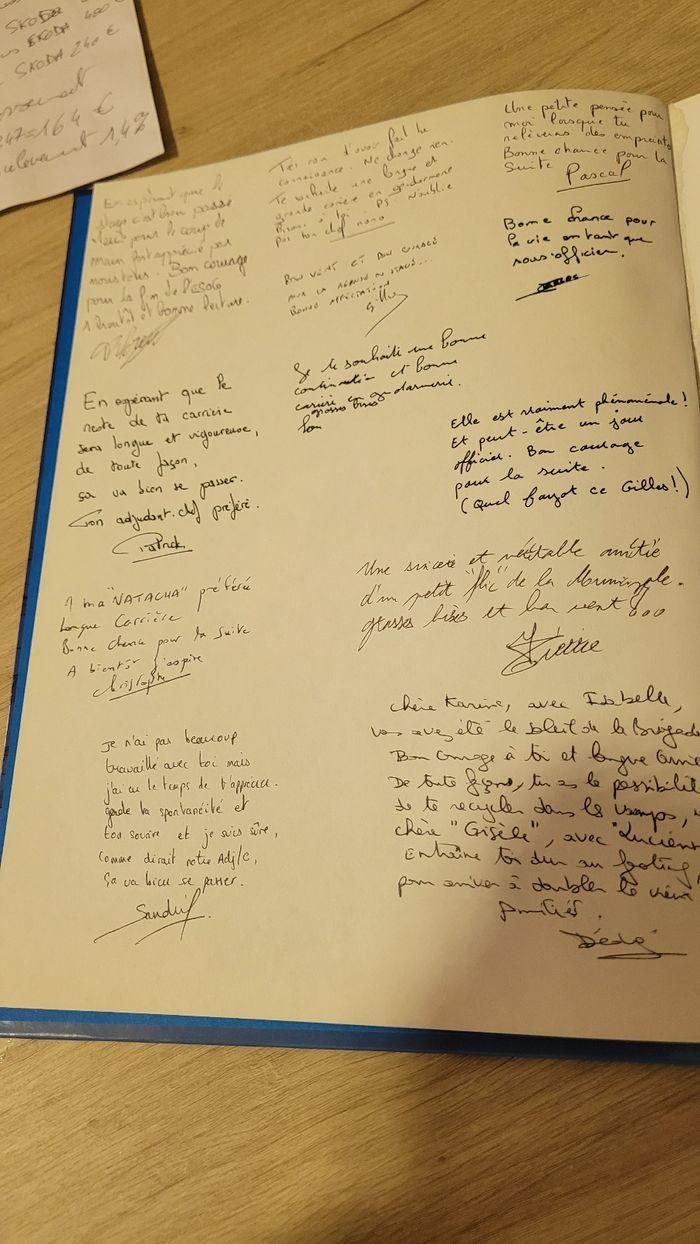 SKODA
SKODA 400 €
SKODA 240 €
247=164 €
1,4%
En espérant que le
stage s'est bien passé
merci pour le coup de
main fort apprécié par
nous tous. Bon courage
pour la fin de l'école
à bientôt et bonne lecture.
Très ravi d'avoir fait ta
connaissance. Ne change rien.
Te souhaite une longue et
grande carrière en gendarmerie
Bisous à toi PS N'oublie
pas ton chef nono
Une petite pensée pour
moi lorsque tu
relèveras des empreintes
Bonne chance pour la
suite
Pascal
Bonne chance pour
la vie en tant que
sous-officier.
BON VENT ET BON COURAGE
POUR LA
BONNE AFFECTATION
Gilles
Je te souhaite une bonne
continuation et bonne
carrière en gendarmerie.
grosses bises
En espérant que le
reste de ta carrière
sera longue et vigoureuse,
de toute façon,
ça va bien se passer.
Ton adjudant-chef préféré.
Patrick
Elle est vraiment phénoménale!
Et peut-être un jour
officier. Bon courage
pour la suite.
(Quel fayot ce Gilles!)
A ma "NATACHA" préférée
Longue Carrière
Bonne chance pour la suite
A bientôt j'espère
Christophe
Une sincère et véritable amitié
d'un petit "flic" de la Municipale.
grosses bises et bon vent...
Pierre
Je n'ai pas beaucoup
travaillé avec toi mais
j'ai eu le temps de t'apprécier.
garde ta spontanéité et
ton sourire et je suis sûre,
comme dirait notre Adj/C,
ça va bien se passer.
Chère Karine, avec Isabelle,
vous avez été le soleil de la Brigade
Bon courage à toi et longue
De toute façon, tu as la possibilité
de te recycler dans les vamps,
chère "Gisèle", avec "Lucienne
Entraîne toi dur au footing,
pour arriver à doubler le vieux
Amitiés.
Dédé